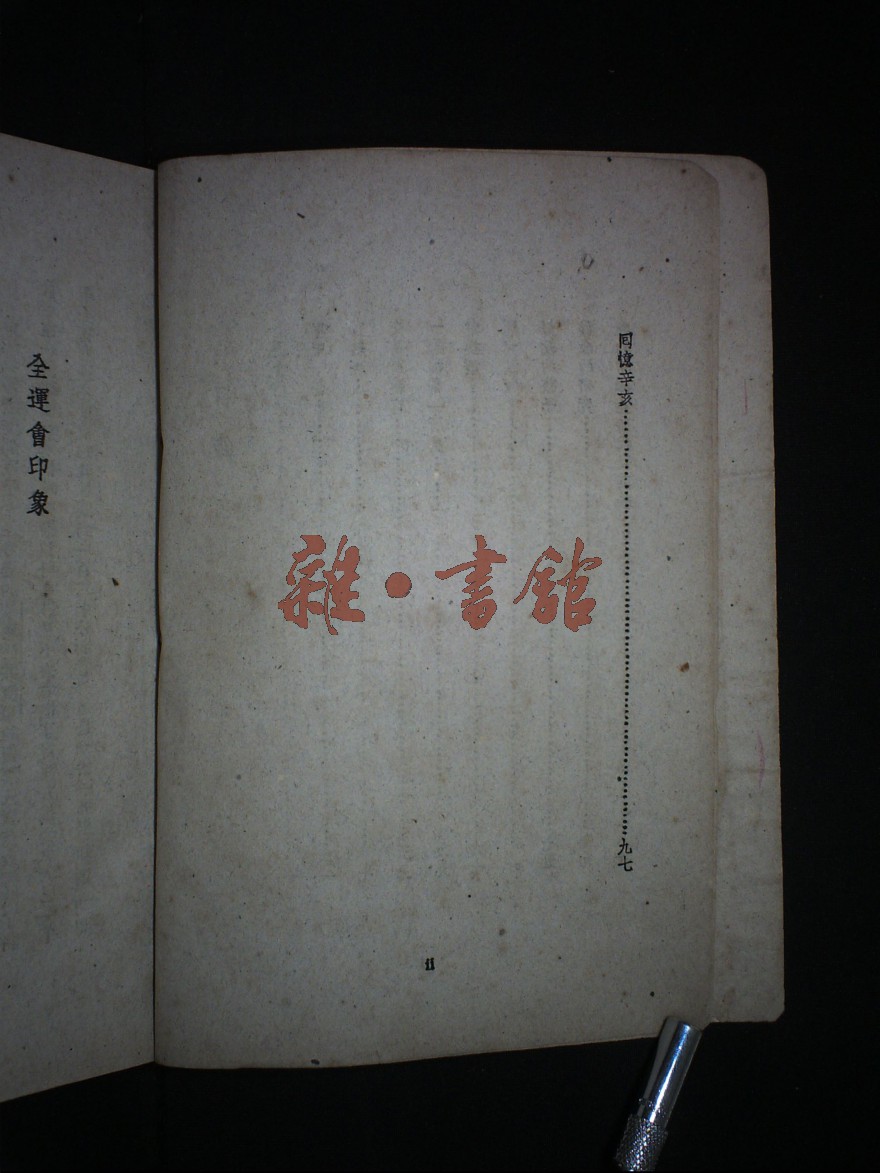 回憶辛亥……………………九七
ii
全運會印象
雜·書館